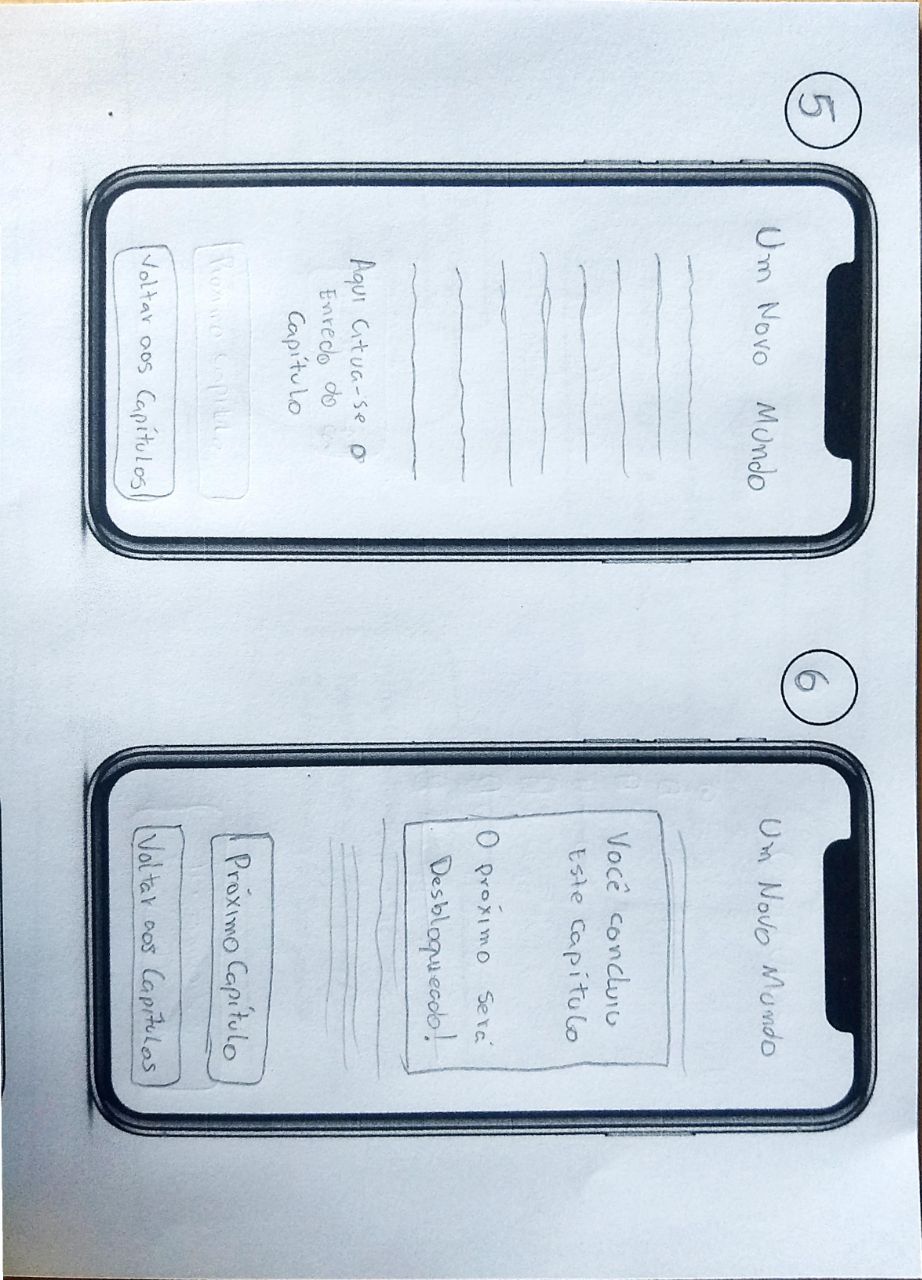 5
Um Novo Mundo
Aqui Citua-se o
Enredo do
Capítulo
Próximo Capítulo
Voltar aos Capítulos
6
Um Novo Mundo
Você concluiu
Este Capítulo
O próximo será
Desbloqueado!
Próximo Capítulo
Voltar aos Capítulos